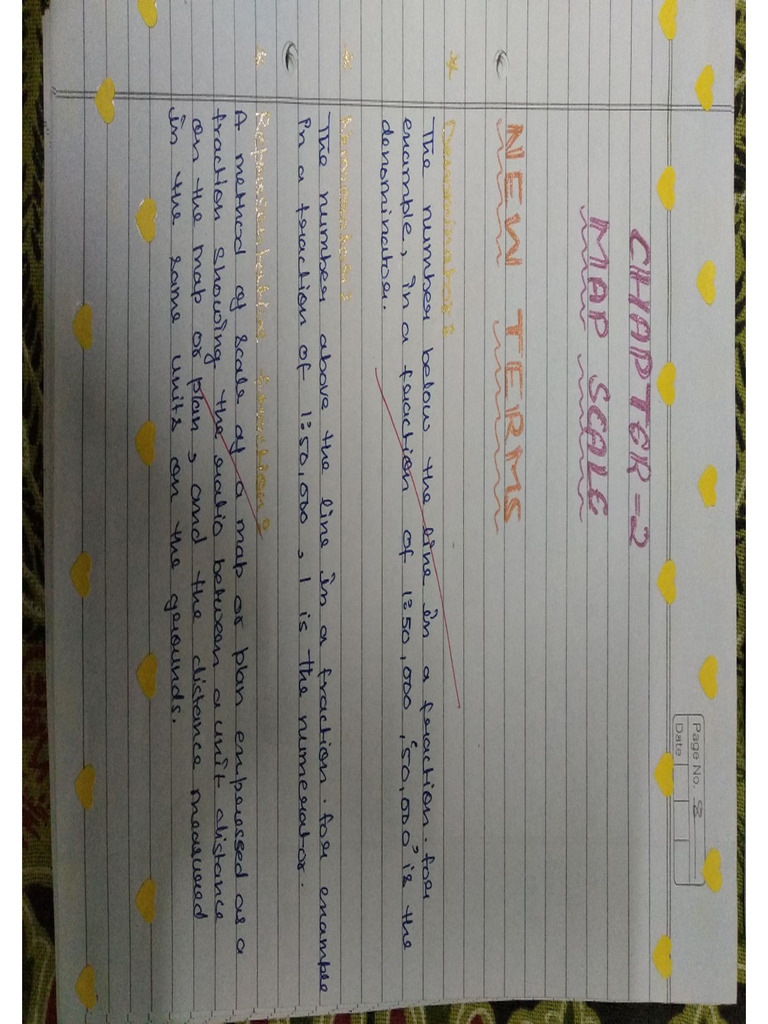 Page No. 8
Date
CHAPTER-2
MAP SCALE
NEW TERMS
* Denominator :
The number below the line in a fraction. for
example, in a fraction of 1:50,000, '50,000' is the
denominator.
* Numerator :
The number above the line in a fraction. for example
in a fraction of 1:50,000, 1 is the numerator.
* Representative fraction :
A method of scale of a map or plan expressed as a
fraction showing the ratio between a unit distance
on the map or plan, and the distance measured
in the same units on the grounds.